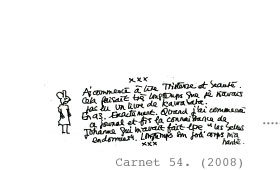 xxx
Ai commencé à lire Tristesse et Beauté.
Cela faisait très longtemps que je n'avais
pas lu un livre de Kawabata.
En 93. Exactement. Quand j'ai commencé
ce journal et fis la connaissance de
Johanna qui m'avait fait lire "les belles
endormies". Longtemps son corps m'a
hanté.
xxx
Carnet 54. (2008)
.....